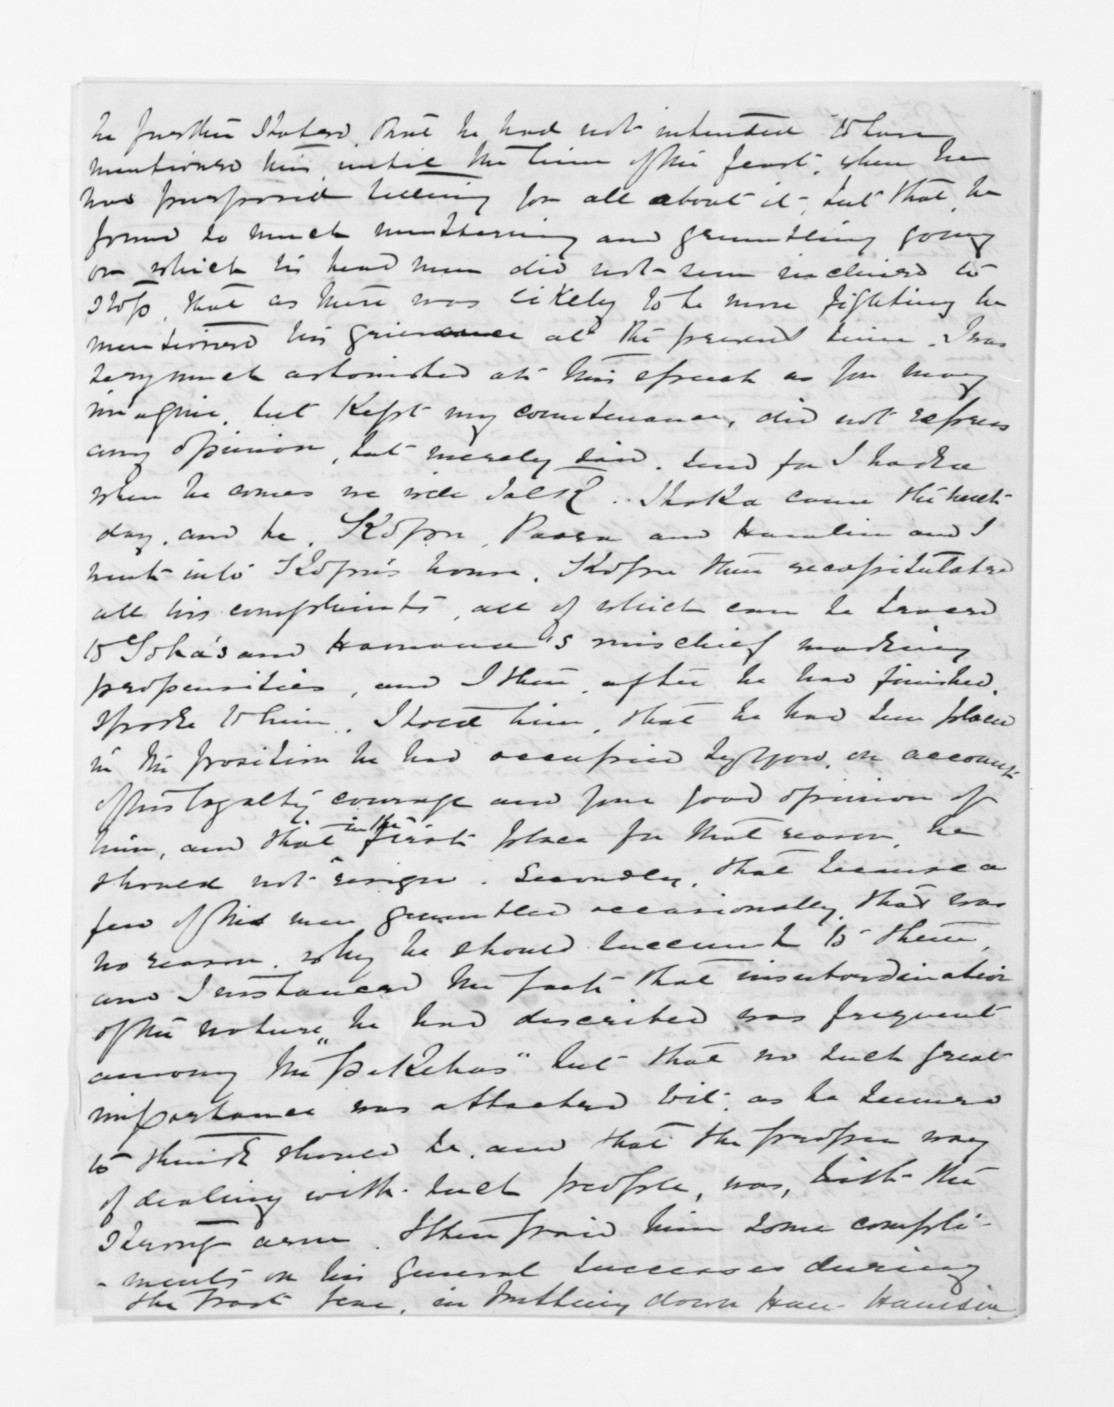 he further stated, that he had not intended to have
mentioned this until the time of the feast, when he
had purposed telling you all about it, but that he
found so much muttering and grumbling going
on which his head men did not seem inclined to
stop, that as there was likely to be more fighting he
mentioned his grievance at the present time. I was
very much astonished at this speech as you may
imagine, but kept my countenance, did not express
any opinion, but merely said. send for
when he comes we will talk. came the next
day, and he, Kopu, and Hamlin and I
went into Kopu's house. Kopu then recapitulated
all his complaints, all of which can be traced
to and 's mischief making
propensities, and I then, after he had finished,
spoke to him. I told him, that he had been placed
in the position he had occupied by you, on account
of his loyalty courage and your good opinion of
him, and that in the first place for that reason, he
should not resign. Secondly, that because a
few of his men grumbled occasionally, that was
no reason, why he should succumb to them,
and I instanced the fact that insubordination
of the nature he had described was frequent
among the "pakehas" but that no such great
importance was attached to it, as he seemed
to think should be, and that the proper way
of dealing with such people, was, with the
strong arm. I then paid him some compli-
-ments on his general successes during
the past year, in putting down Hau Hauism